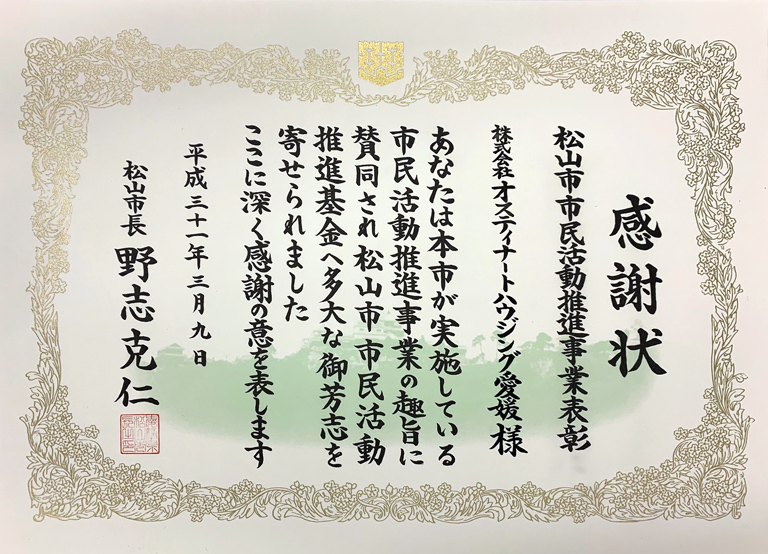 感謝状
松山市市民活動推進事業表彰
株式会社オスティナートハウジング愛媛様
あなたは本市が実施している
市民活動推進事業の趣旨に
賛同され松山市市民活動
推進基金へ多大な御芳志を
寄せられました
ここに深く感謝の意を表します
平成三十一年三月九日
松山市長 野志克仁